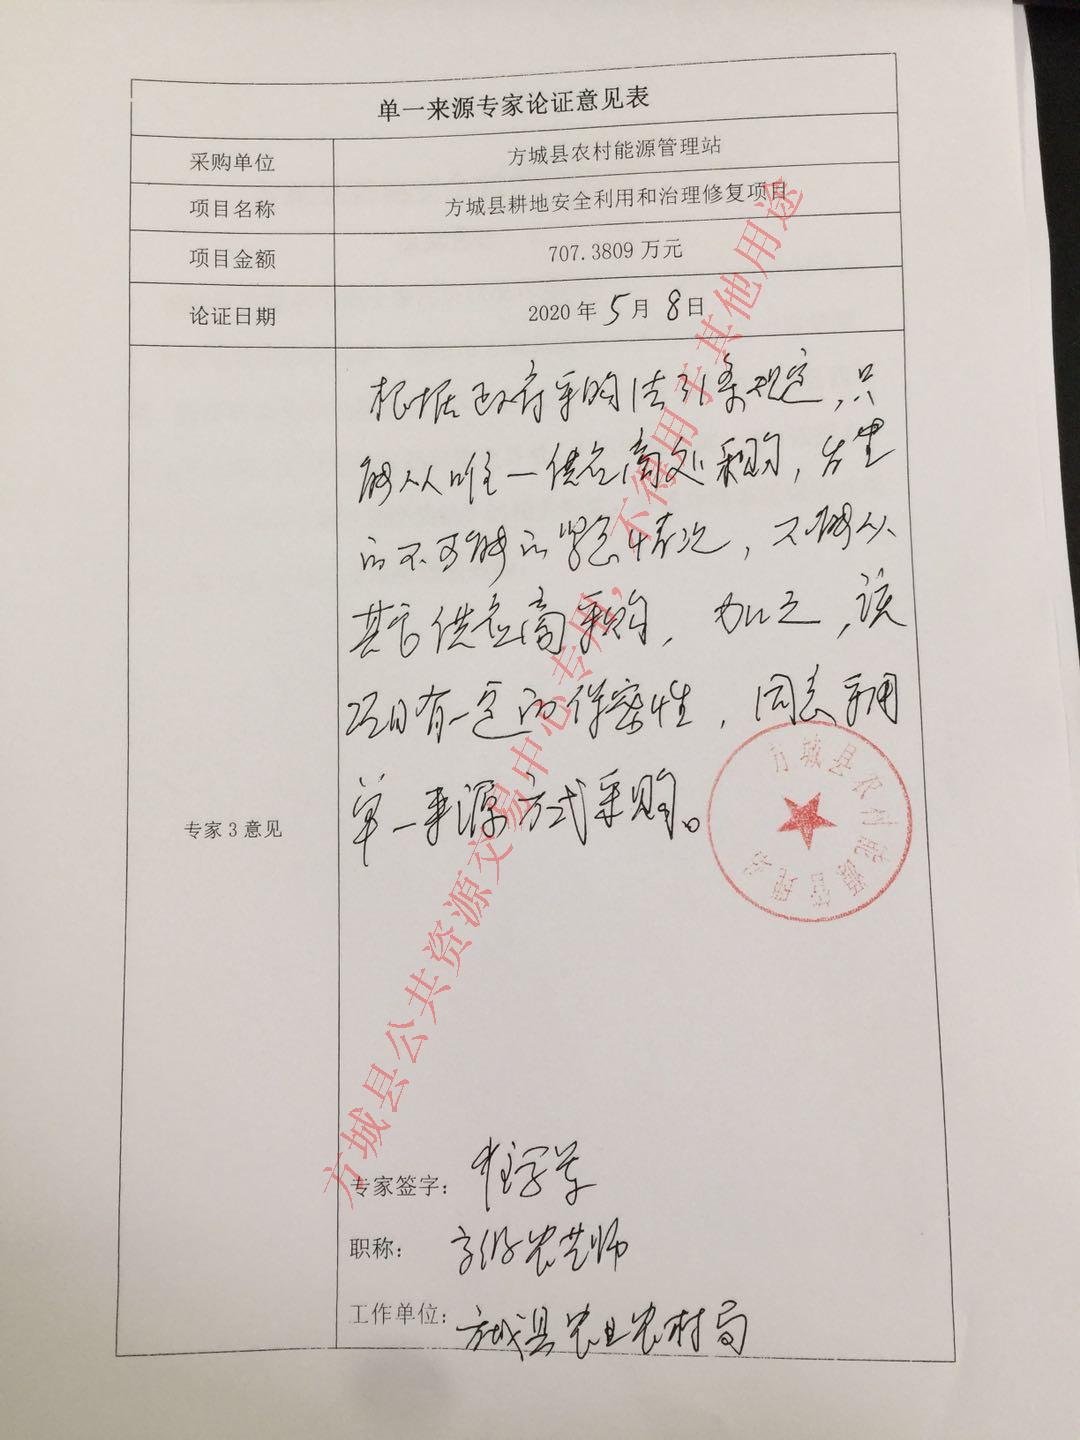 单一来源专家论证意见表
采购单位 方城县农村能源管理站
项目名称 方城县耕地安全利用和治理修复项目
项目金额 707.3809 万元
论证日期 2020 年 5 月 8 日
根据政府采购法31条规定,只
能从唯一供应商处采购,发生
的不可能的紧急情况,不能从
其它供应商采购,加之,该
项目有一定的保密性,同意采用
单一来源方式采购。
专家 3 意见
方城县农村能源管理站
专家签字:
职称: 高级农艺师
工作单位: 方城县农业农村局
方城县公共资源交易中心专用,不得用于其他用途